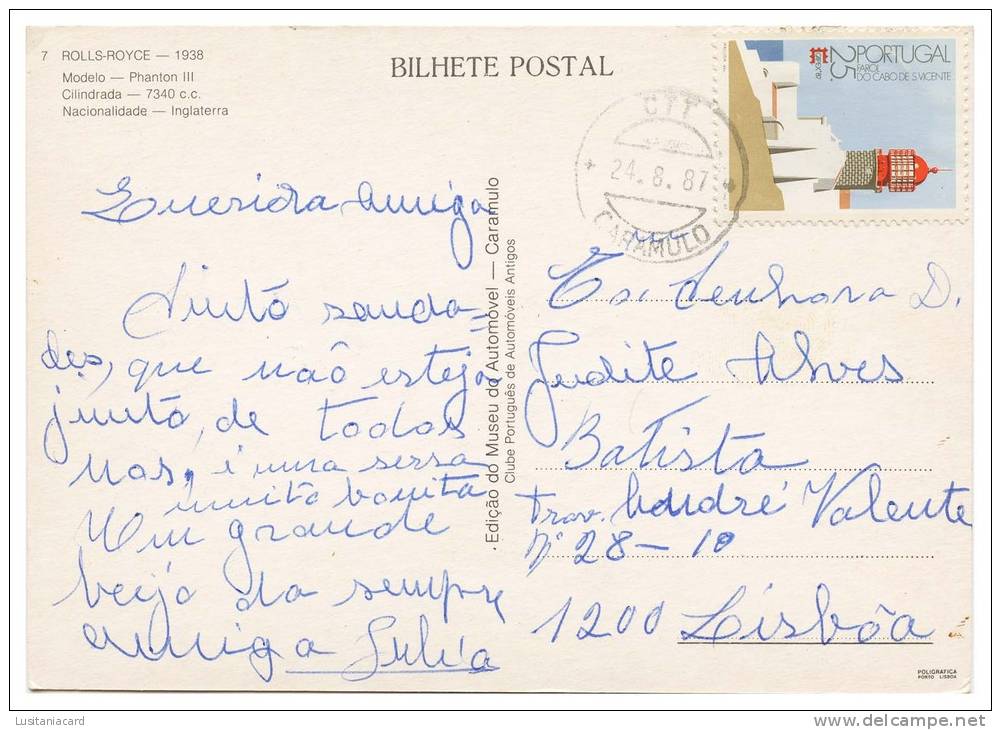 7 ROLLS-ROYCE — 1938
Modelo — Phanton III
Cilindrada — 7340 c.c.
Nacionalidade — Inglaterra
BILHETE POSTAL
PORTUGAL
FAROL
DO CABO DE S. VICENTE
25.
CTT
24.8.87
CARAMULO
Querida Amiga
Sinto sauda=
des, que não esteja
junto, de todos
nos, é uma serra
muito bonita
Um grande
beijo da sempre
amiga Julia
Edição do Museu do Automóvel — Caramulo
Clube Português de Automóveis Antigos
Ex. Senhora D.
Judite Alves
Batista
Trav. André Valente
Nº 28-1º
1200 Lisbôa
POLIGRAFICA
PORTO LISBOA
Lusitaniacard
www.delcampe.net